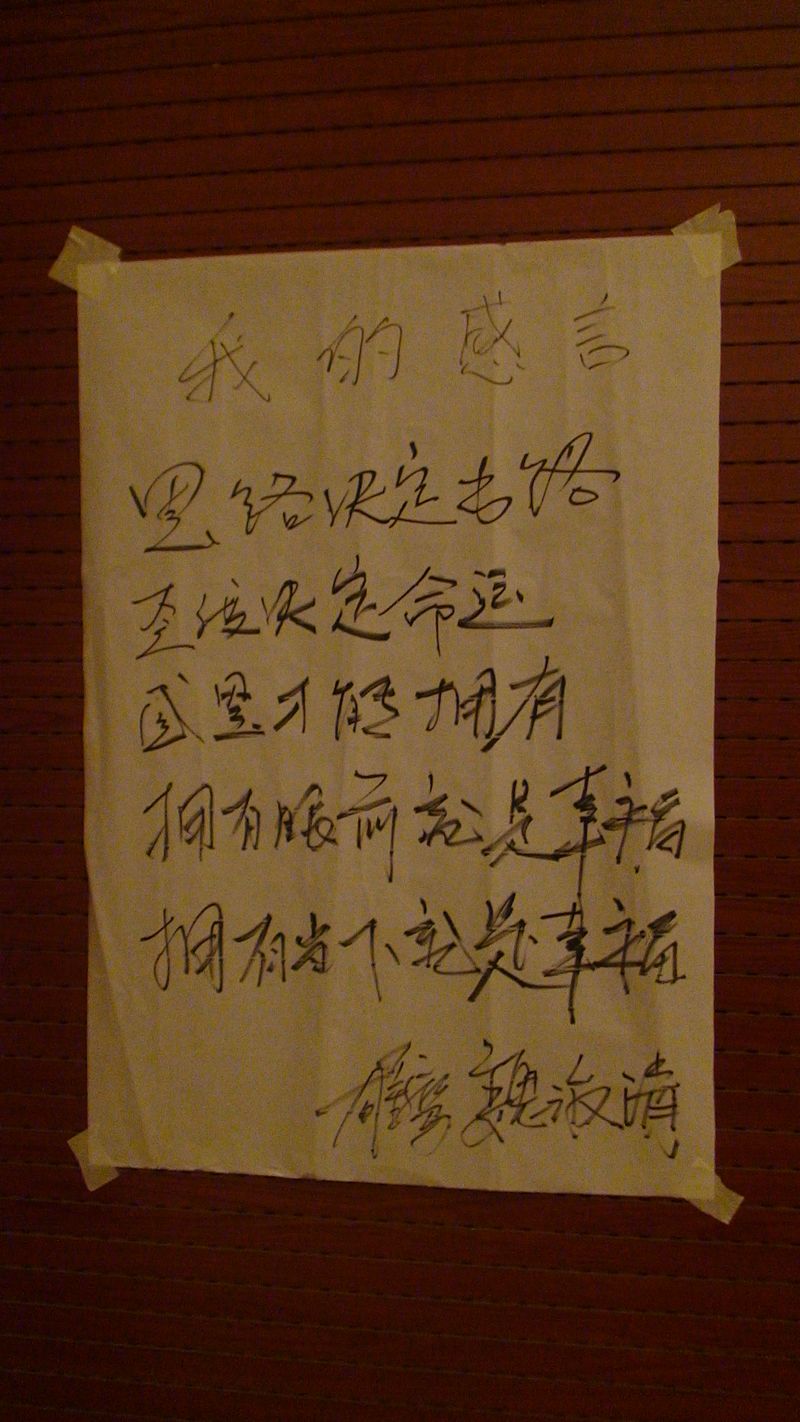 我的感言
思路决定出路
态度决定命运
感恩才能拥有
拥有眼前就是幸福
拥有当下就是幸福
魏淑清